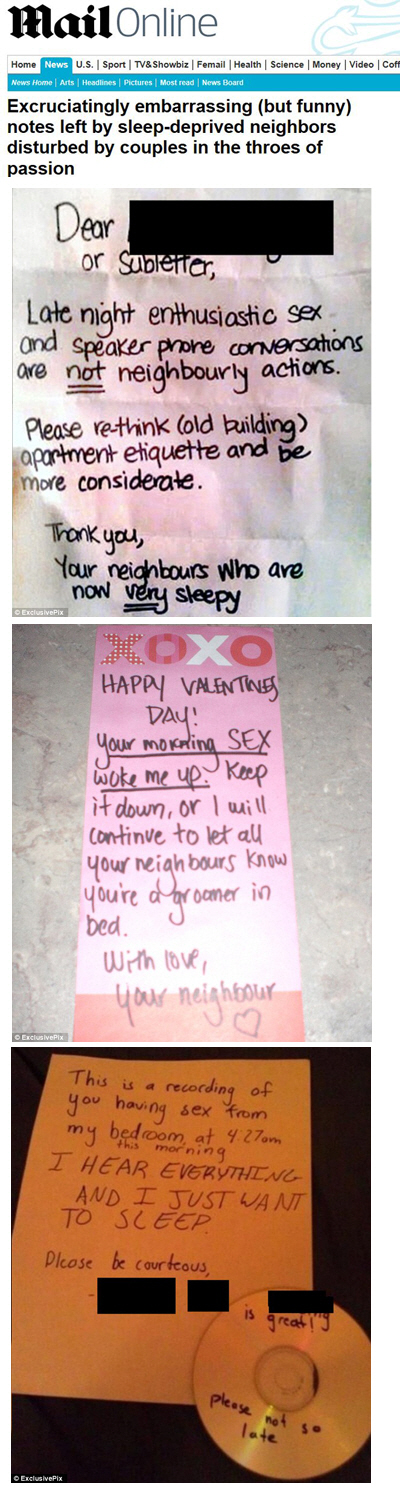 Mail Online
Home News U.S. Sport TV&Showbiz Femail Health Science Money Video Coff
News Home Arts Headlines Pictures Most read News Board
Excruciatingly embarrassing (but funny)
notes left by sleep-deprived neighbors
disturbed by couples in the throes of
passion
Dear
or Subletter,
Late night enthusiastic sex
and speaker phone conversations
are not neighbourly actions.
Please re-think (old building)
apartment etiquette and be
more considerate.
Thank you,
Your neighbours who are
now very sleepy
© ExclusivePix
XOXO
HAPPY VALENTINES
DAY!
your morning SEX
woke me up. Keep
it down, or I will
continue to let all
your neighbours know
you're a groaner in
bed.
With love,
Your neighbour
© ExclusivePix
This is a recording of
you having sex from
my bedroom, at 4:27am
this morning
I HEAR EVERYTHING
AND I JUST WANT
TO SLEEP.
Please be courteous,
-
is great!
please not so
late
© ExclusivePix